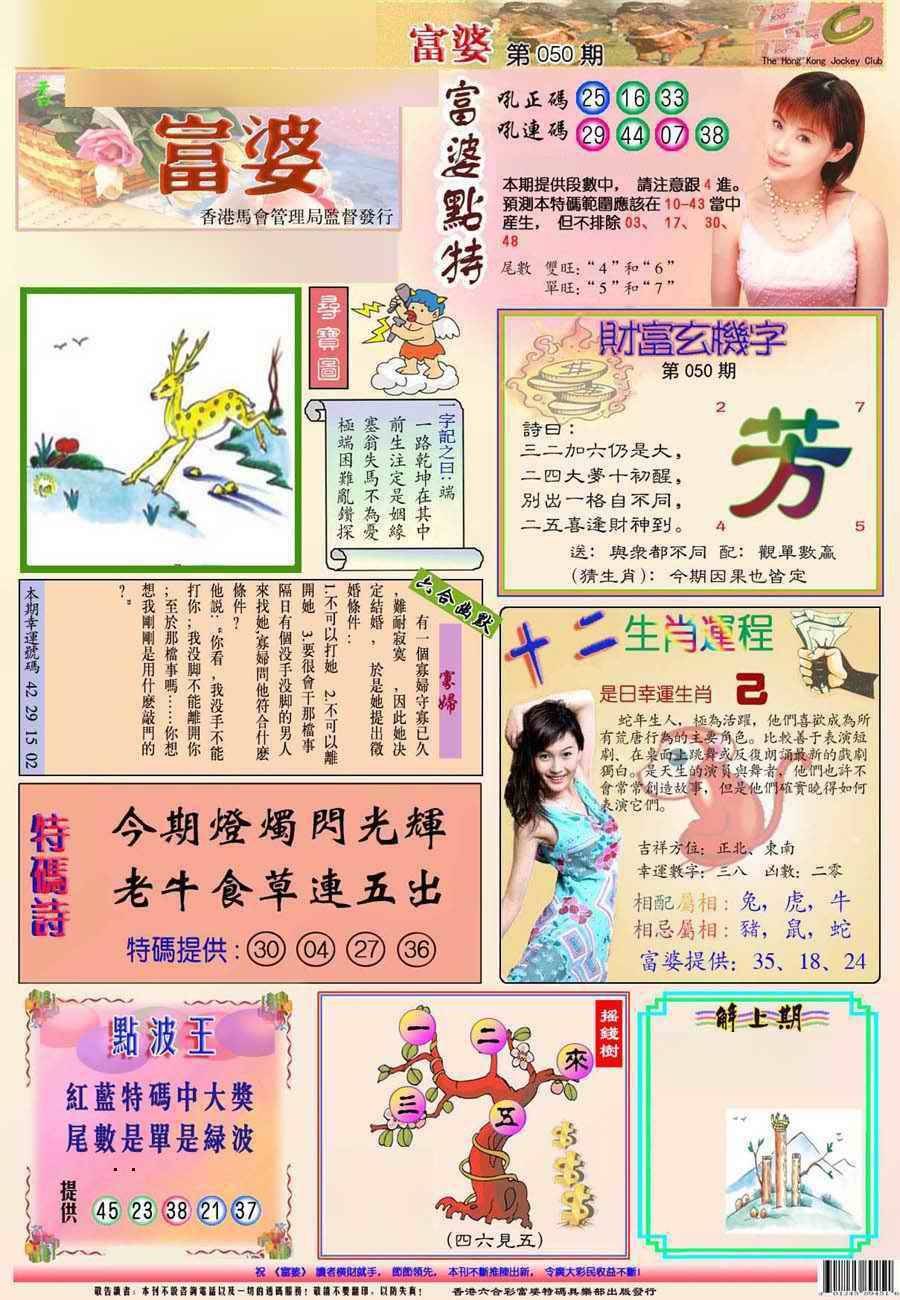 富婆 第050期
The Hong Kong Jockey Club
香
富婆
香港馬會管理局監督發行
富婆點特
吼正碼 25 16 33
吼連碼 29 44 07 38
本期提供段數中, 請注意跟4進。
預測本特碼範圍應該在10-43當中
産生, 但不排除03、 17、 30、
48
尾數 雙旺:“4”和“6”
單旺:“5”和“7”
尋寶圖
一字記之曰:端
一路乾坤在其中
前生注定是姻緣
塞翁失馬不為憂
極端困難亂鑽探
財富玄機字
第050期
詩曰:
三二加六仍是大,
二四大夢十初醒,
別出一格自不同,
二五喜逢財神到。
2 7
芳
4 5
送: 與衆都不同 配: 觀單數贏
(猜生肖): 今期因果也皆定
六合幽默
寡婦
有一個寡婦守寡已久
,難耐寂寞 ,因此她决
定結婚, 於是她提出徵
婚條件:
1.不可以打她 2.不可以離
開她 3.要很會干那檔事
隔日有個没手没脚的男人
來找她,寡婦問他符合什麽
條件?
他説:“你看,我没手不能
打你;我没脚不能離開你
;至於那檔事嗎……你想
想我剛剛是用什麽敲門的
?”
本期幸運號碼 42 29 15 02
十二生肖運程
是日幸運生肖 己
蛇年生人, 極為活躍, 他們喜歡成為所
有荒唐行為的主要角色。比較善于表演短
劇、在桌面上跳舞或反復朗誦最新的戲劇
獨白。是天生的演員與舞者, 他們也許不
會常常創造故事, 但是他們確實曉得如何
表演它們。
吉祥方位: 正北、東南
幸運數字: 三八 凶數: 二零
相配屬相: 兔, 虎, 牛
相忌屬相: 豬, 鼠, 蛇
富婆提供: 35、18、24
特碼詩
今期燈燭閃光輝
老牛食草連五出
特碼提供: 30 04 27 36
點波王
紅藍特碼中大獎
尾數是單是緑波
提供 45 23 38 21 37
摇錢樹
一 二 來
三 五
(四六見五)
解上期
祝 《富婆》 讀者横財就手, 節節領先, 本刊不斷推陳出新, 令廣大彩民收益不斷!
敬告讀者: 本刊不設咨詢電話以及一切的透碼服務! 敬請不要翻印, 以防失真! 香港六合彩富婆特碼具樂部出版發行